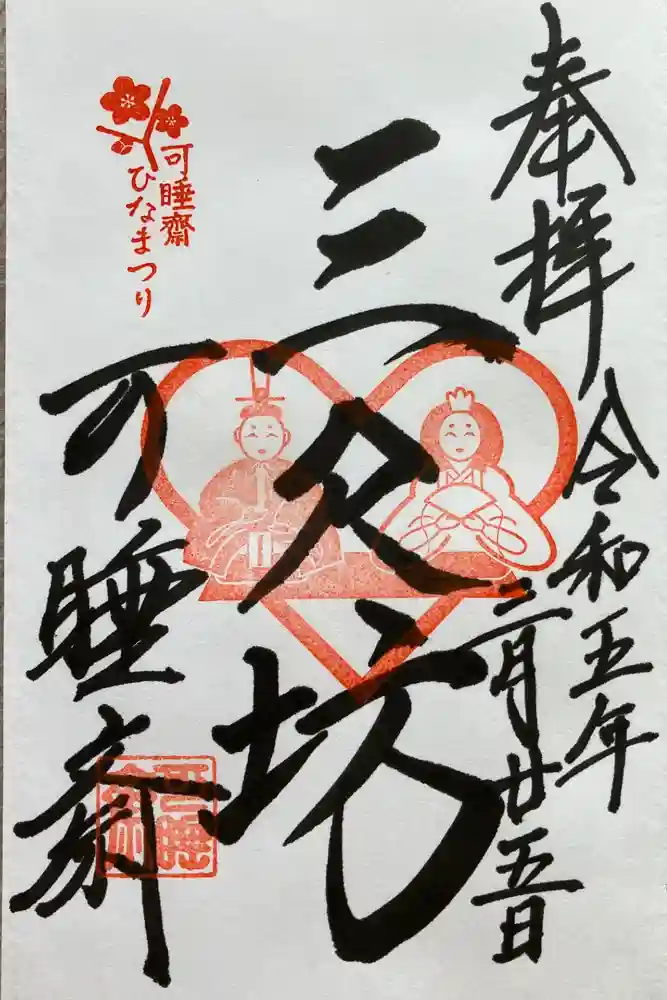 奉拝
令和五年
二月廿五日
三尺坊
可睡斎
可睡齋
ひなまつり